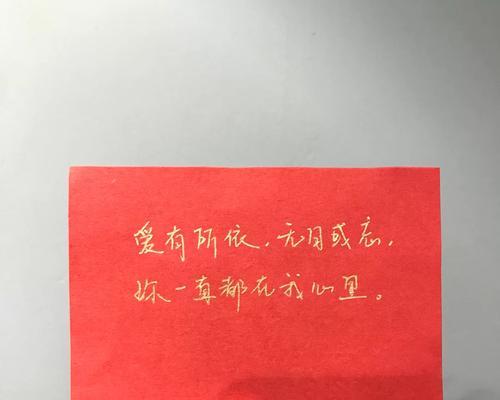 爱有所依，无日或忘，
你一直都在我心里。